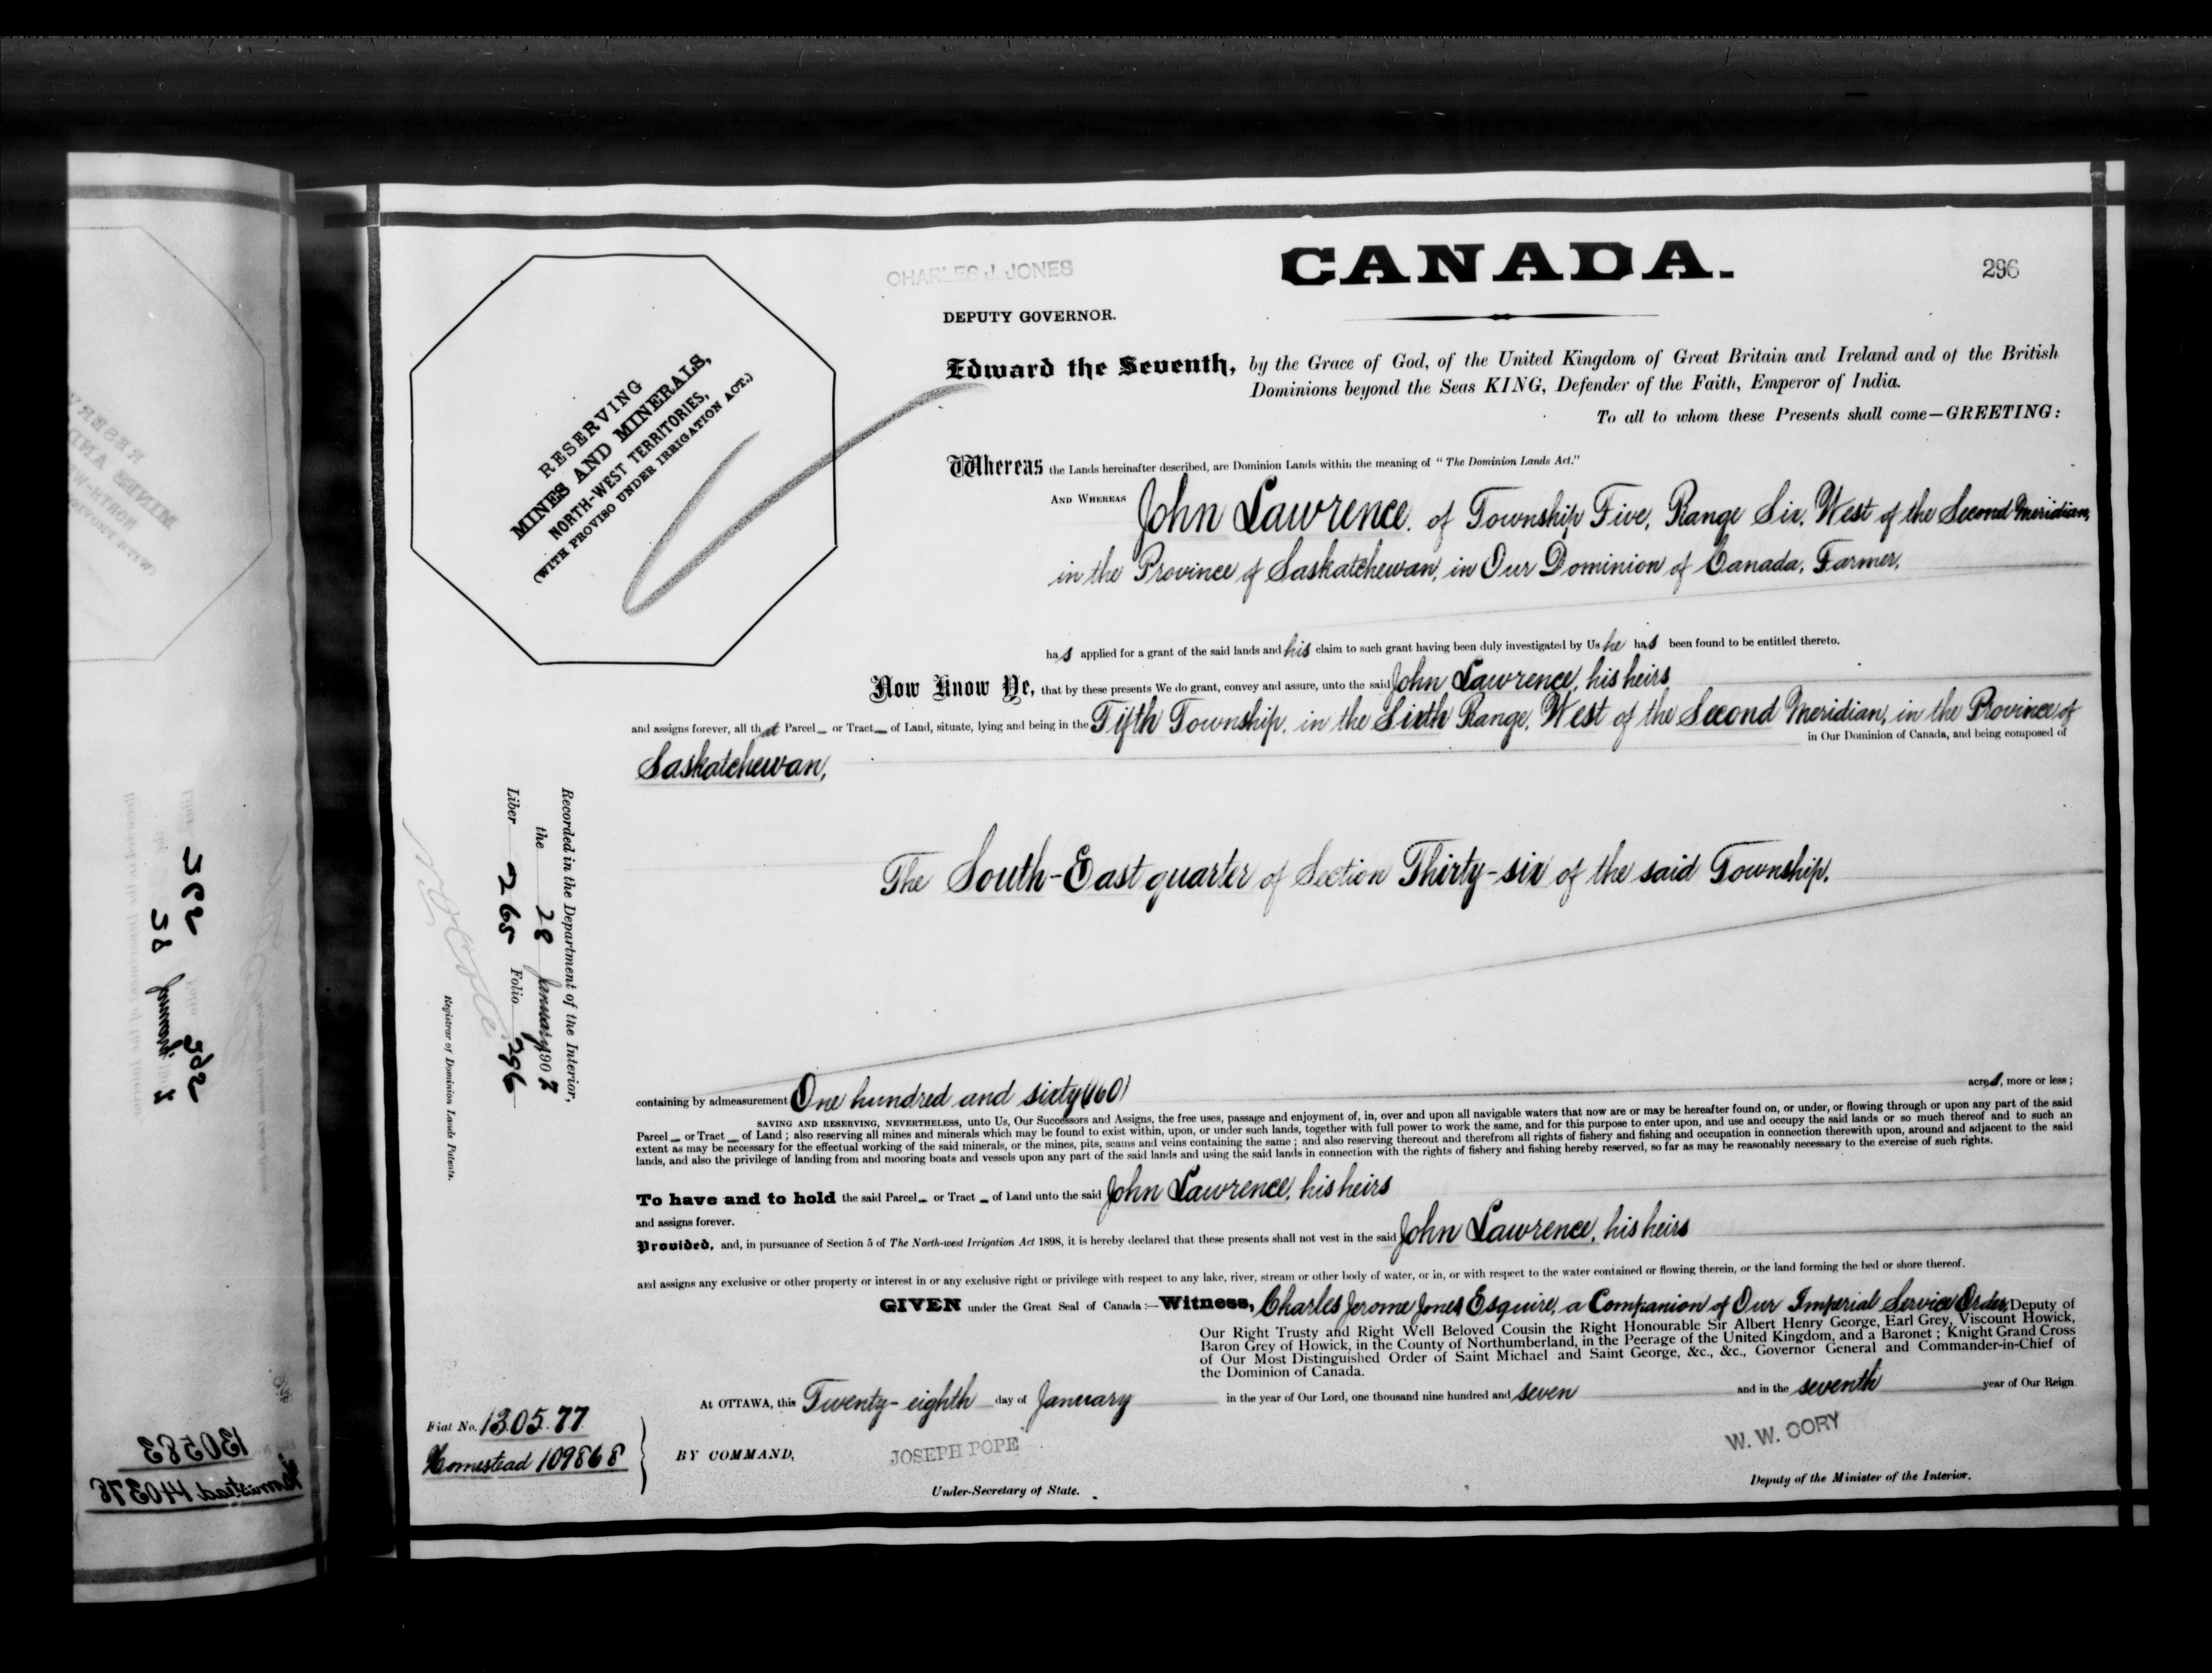 CHARLES J. JONES
CANADA.
296
DEPUTY GOVERNOR.
RESERVING
MINES AND MINERALS,
NORTH-WEST TERRITORIES,
(WITH PROVISO UNDER IRRIGATION ACT.)
Edward the Seventh, by the Grace of God, of the United Kingdom of Great Britain and Ireland and of the British
Dominions beyond the Seas KING, Defender of the Faith, Emperor of India.
To all to whom these Presents shall come—GREETING:
Whereas the Lands hereinafter described, are Dominion Lands within the meaning of "The Dominion Lands Act."
AND WHEREAS John Lawrence, of Township Five, Range Six, West of the Second Meridian,
in the Province of Saskatchewan, in Our Dominion of Canada, Farmer,
has applied for a grant of the said lands and his claim to such grant having been duly investigated by Us he has been found to be entitled thereto.
Now Know Ye, that by these presents We do grant, convey and assure, unto the said John Lawrence, his heirs
and assigns forever, all that Parcel_ or Tract_ of Land, situate, lying and being in the Fifth Township, in the Sixth Range, West of the Second Meridian, in the Province of
in Our Dominion of Canada, and being composed of
Saskatchewan,
The South-East quarter of Section Thirty-six of the said Township.
Recorded in the Department of the Interior,
the 28 January 1907
Liber 265 Folio 296
Registrar of Dominion Lands Patents.
containing by admeasurement One hundred and sixty (160) acres, more or less;
SAVING AND RESERVING, NEVERTHELESS, unto Us, Our Successors and Assigns, the free uses, passage and enjoyment of, in, over and upon all navigable waters that now are or may be hereafter found on, or under, or flowing through or upon any part of the said
Parcel_ or Tract_ of Land; also reserving all mines and minerals which may be found to exist within, upon, or under such lands, together with full power to work the same, and for this purpose to enter upon, and use and occupy the said lands or so much thereof and to such an
extent as may be necessary for the effectual working of the said minerals, or the mines, pits, seams and veins containing the same; and also reserving thereout and therefrom all rights of fishery and fishing and occupation in connection therewith upon, around and adjacent to the said
lands, and also the privilege of landing from and mooring boats and vessels upon any part of the said lands and using the said lands in connection with the rights of fishery and fishing hereby reserved, so far as may be reasonably necessary to the exercise of such rights.
To have and to hold the said Parcel_ or Tract_ of Land unto the said John Lawrence, his heirs
and assigns forever.
Provided, and, in pursuance of Section 5 of The North-west Irrigation Act 1898, it is hereby declared that these presents shall not vest in the said John Lawrence, his heirs
and assigns any exclusive or other property or interest in or any exclusive right or privilege with respect to any lake, river, stream or other body of water, or in, or with respect to the water contained or flowing therein, or the land forming the bed or shore thereof.
GIVEN under the Great Seal of Canada:—Witness, Charles Jerome Jones Esquire, a Companion of Our Imperial Service Order, Deputy of
Our Right Trusty and Right Well Beloved Cousin the Right Honourable Sir Albert Henry George, Earl Grey, Viscount Howick,
Baron Grey of Howick, in the County of Northumberland, in the Peerage of the United Kingdom, and a Baronet; Knight Grand Cross
of Our Most Distinguished Order of Saint Michael and Saint George, &c., &c., Governor General and Commander-in-Chief of
the Dominion of Canada.
At OTTAWA, this Twenty-eighth day of January in the year of Our Lord, one thousand nine hundred and seven and in the seventh year of Our Reign
Fiat No. 130577
Homestead 109868
BY COMMAND,
JOSEPH POPE
Under-Secretary of State.
W. W. CORY
Deputy of the Minister of the Interior.
130583
Homestead 140376